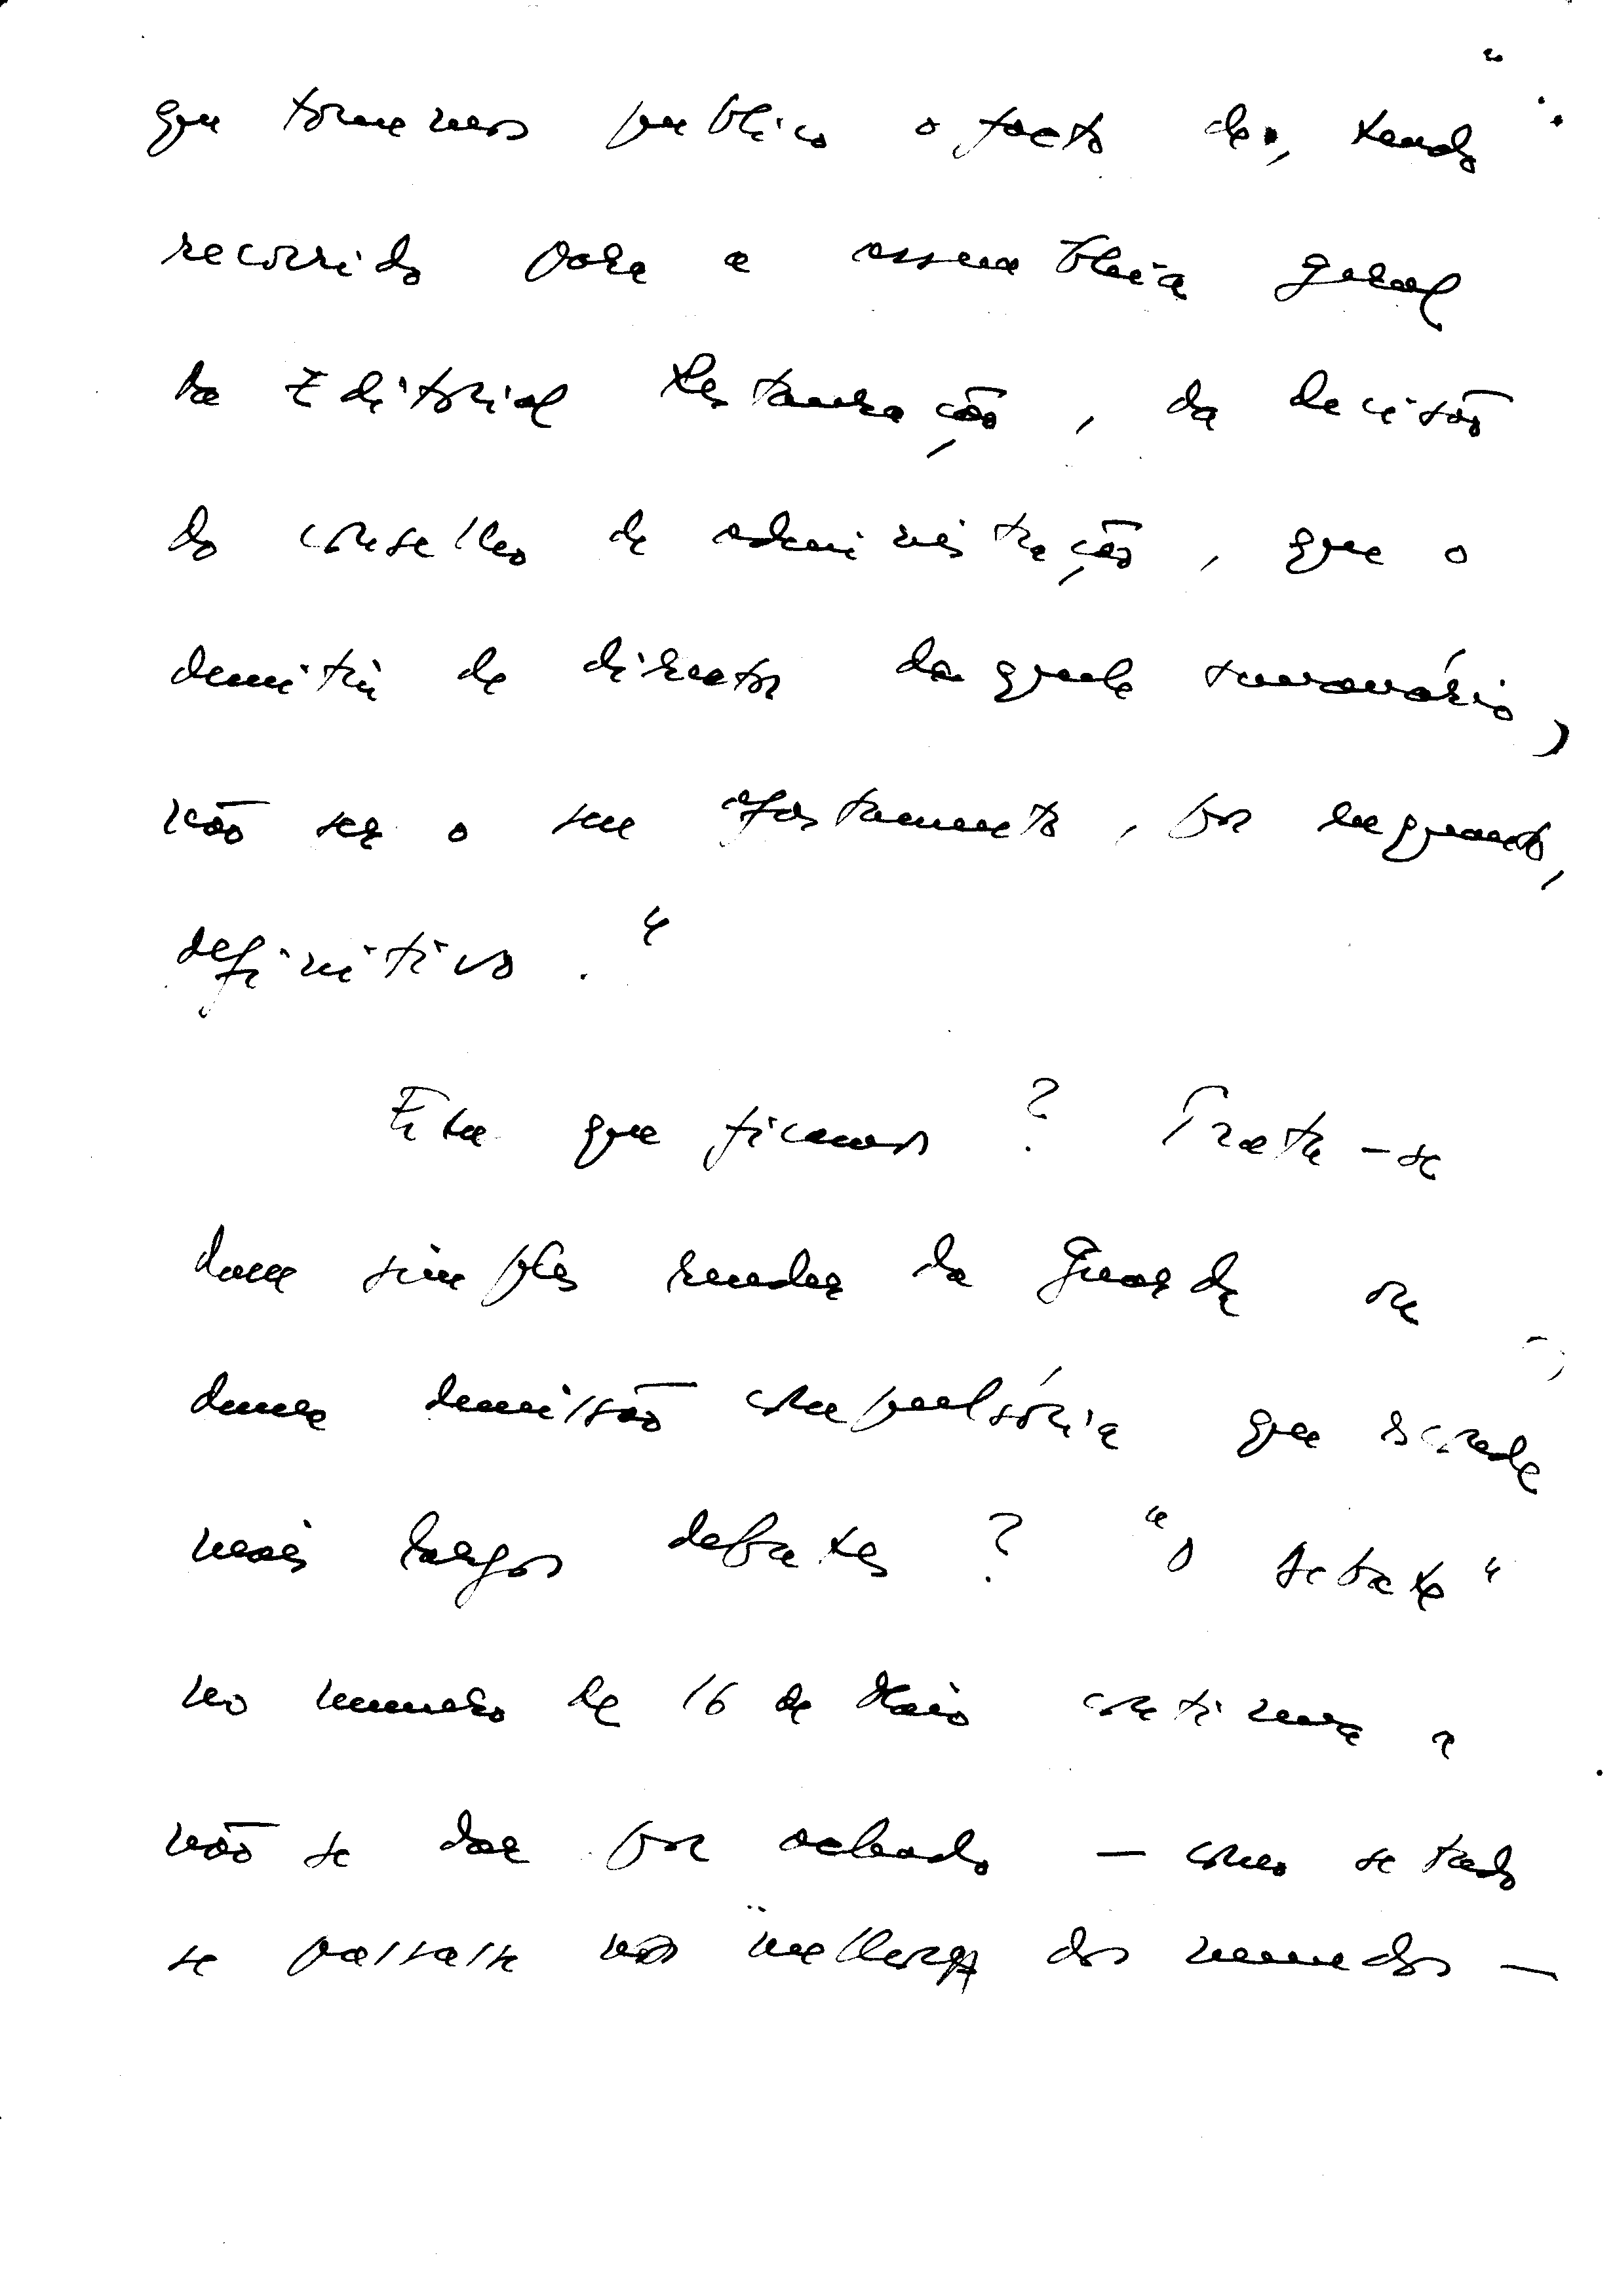 que tornemos publico o facto de, tendo
recorrido para a assembleia geral
da Editorial Restauração, da decisão
do conselho de administração, que o
demitiu de director daquele semanário,
não ser o seu afastamento, por enquanto,
definitivo."
Em que ficamos? Trata-se
dum simples render da Guarda ou
duma demissão compulsória que esconde
mais largos debates? "O debate"
no numero de 16 de Maio continua a
não se dar por achado — como se tudo
se passasse no melhor dos mundos —